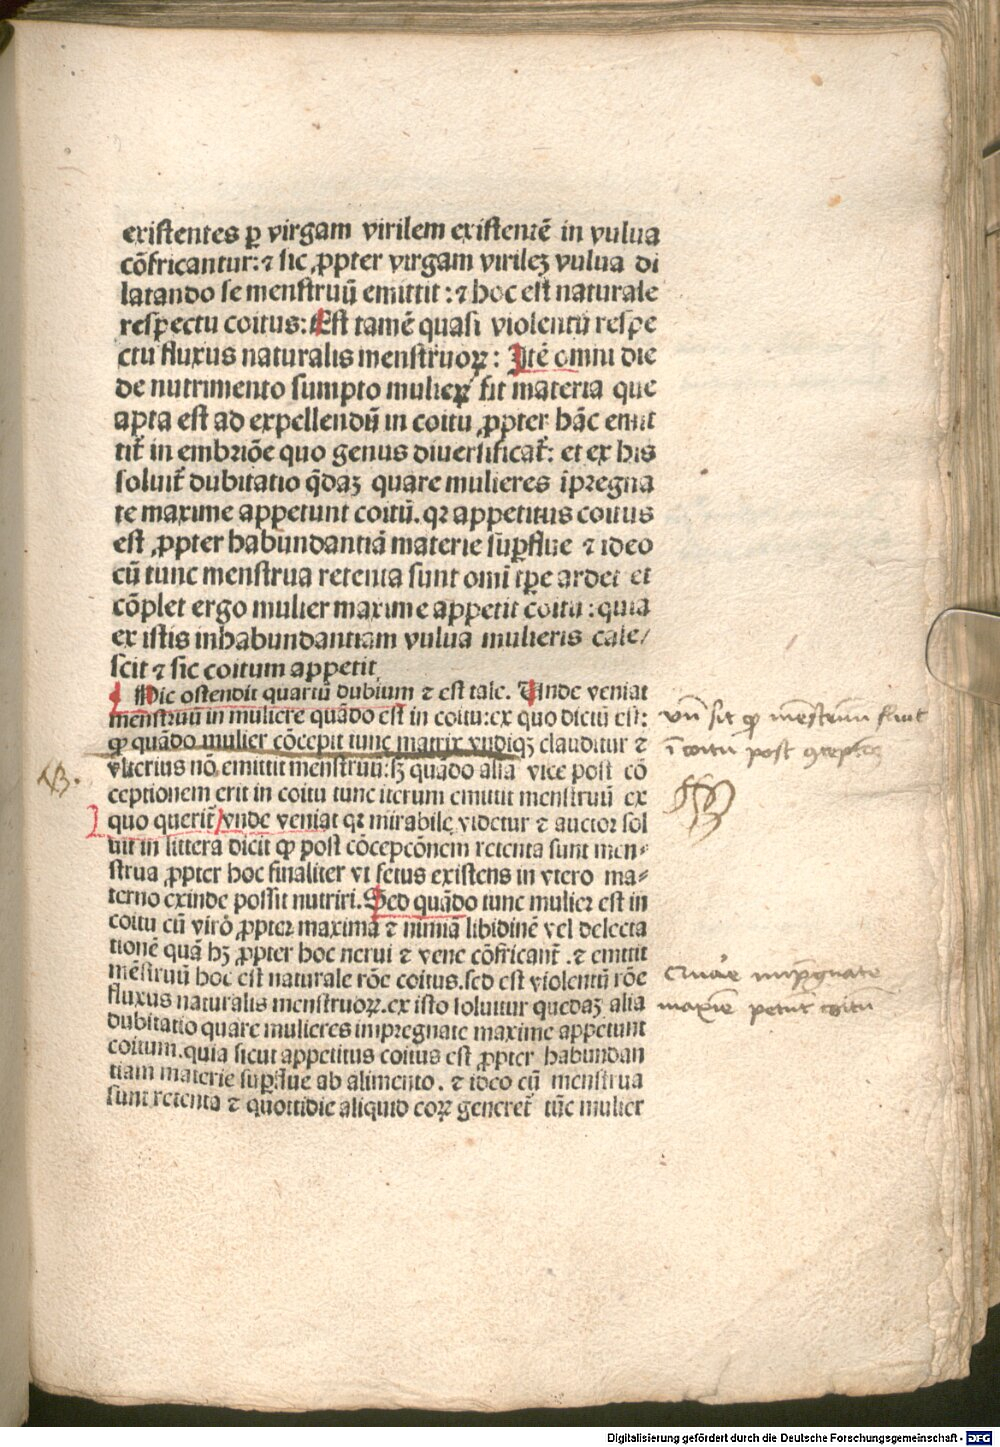 existentes ꝑ virgam virilem existentē in vulua
cōfricantur: ⁊ sic ꝓpter virgam virilēꝫ vulua di
latando se menstruū emittit: ⁊ hoc est naturale
respectu coitus: Est tamē quasi violentū respe
ctu fluxus naturalis menstruoꝝ: Itē omni die
de nutrimento sumpto mulieꝝ fit materia que
apta est ad expellendū in coitu ꝓpter hāc emit
tit̃ in embriōe quo genus diuersificat̃: et ex his
soluit̃ dubitatio q̄daꝫ quare mulieres īpregna
te maxime appetunt coitū. qꝛ appetitus coitus
est ꝓpter habundantiā materie suꝑflue ⁊ ideo
cū tunc menstrua retenta sunt omī tꝑe ardet et
cōplet ergo mulier maxime appetit coitū: quia
ex istis inhabundantiam vulua mulieris cale/
scit ⁊ sic coitum appetit
Hic ostendit quartū dubium ⁊ est tale. Unde veniat
menstruū in muliere quādo est in coitu: ex quo dictū est:
ꝙ quādo mulier cōcepit tunc matrix vndiqꝫ clauditur ⁊
vlterius nō emittit menstruū: sꝫ quādo alia vice post cō
ceptionem erit in coitu tunc iterum emittit menstruū ex
quo querit̃ vnde veniat qꝛ mirabile videtur ⁊ auctor sol
uit in littera dicit ꝙ post cōcepcōnem retenta sunt men⸗
strua ꝓpter hoc finaliter vt fetus existens in vtero ma⸗
terno exinde possit nutriri. Sed quādo tunc mulier est in
coitu cū viro ꝓpter maximā ⁊ nimiā libidinē vel delecta
tionē quā hꝫ ꝓpter hoc nerui ⁊ vene cōfricant̃. ⁊ emittit
mēstruū hoc est naturale rōe coitus. sed est violentū rōe
fluxus naturalis menstruoꝝ. ex isto soluitur quedaꝫ alia
dubitatio quare mulieres impregnate maxime appetunt
coitum. quia sicut appetitus coitus est ꝓpter habundan
tiam materie suꝑflue ab alimento. ⁊ ideo cū menstrua
sunt retenta ⁊ quottidie aliquid coꝝ generet̃ tūc mulier
vñ sit ꝙ mēstruū fluit
ī coitu post
īpregnate
maxīe petūt coitū
Digitalisierung gefördert durch die Deutsche Forschungsgemeinschaft - DFG